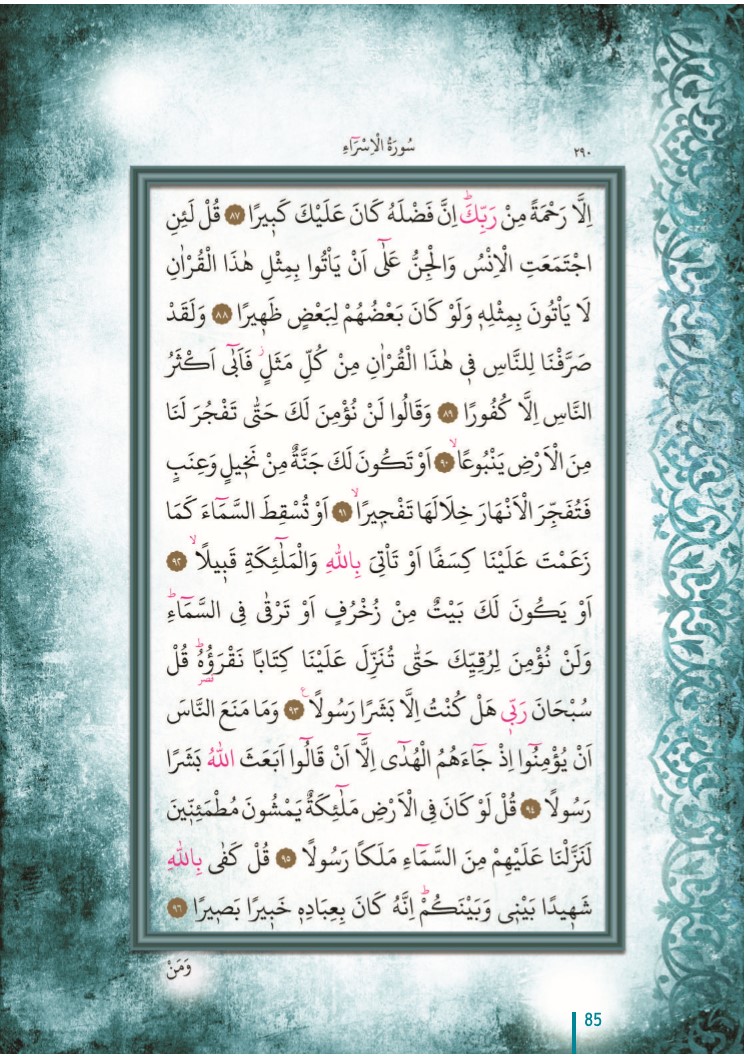 سُورَةُ الْاِسْرَٓاءِ
٢٩٠
اِلَّا رَحْمَةً مِنْ رَبِّكَۜ اِنَّ فَضْلَهُ كَانَ عَلَيْكَ كَب۪يرًا ﴿٨٧﴾ قُلْ لَئِنِ
اجْتَمَعَتِ الْاِنْسُ وَالْجِنُّ عَلٰٓى اَنْ يَأْتُوا بِمِثْلِ هٰذَا الْقُرْاٰنِ
لَا يَأْتُونَ بِمِثْلِه۪ وَلَوْ كَانَ بَعْضُهُمْ لِبَعْضٍ ظَه۪يرًا ﴿٨٨﴾ وَلَقَدْ
صَرَّفْنَا لِلنَّاسِ ف۪ي هٰذَا الْقُرْاٰنِ مِنْ كُلِّ مَثَلٍۘ فَاَبٰٓى اَكْثَرُ
النَّاسِ اِلَّا كُفُورًا ﴿٨٩﴾ وَقَالُوا لَنْ نُؤْمِنَ لَكَ حَتّٰى تَفْجُرَ لَنَا
مِنَ الْاَرْضِ يَنْبُوعًاۙ ﴿٩٠﴾ اَوْ تَكُونَ لَكَ جَنَّةٌ مِنْ نَخ۪يلٍ وَعِنَبٍ
فَتُفَجِّرَ الْاَنْهَارَ خِلَالَهَا تَفْج۪يرًاۙ ﴿٩١﴾ اَوْ تُسْقِطَ السَّمَٓاءَ كَمَا
زَعَمْتَ عَلَيْنَا كِسَفًا اَوْ تَأْتِيَ بِاللّٰهِ وَالْمَلٰٓئِكَةِ قَب۪يلًاۙ ﴿٩٢﴾
اَوْ يَكُونَ لَكَ بَيْتٌ مِنْ زُخْرُفٍ اَوْ تَرْقٰى فِي السَّمَٓاءِۜ
وَلَنْ نُؤْمِنَ لِرُقِيِّكَ حَتّٰى تُنَزِّلَ عَلَيْنَا كِتَابًا نَقْرَؤُ۬هُۜ قُلْ
سُبْحَانَ رَبّ۪ي هَلْ كُنْتُ اِلَّا بَشَرًا رَسُولًا۟ ﴿٩٣﴾ وَمَا مَنَعَ النَّاسَ
اَنْ يُؤْمِنُٓوا اِذْ جَٓاءَهُمُ الْهُدٰٓى اِلَّٓا اَنْ قَالُٓوا اَبَعَثَ اللّٰهُ بَشَرًا
رَسُولًا ﴿٩٤﴾ قُلْ لَوْ كَانَ فِي الْاَرْضِ مَلٰٓئِكَةٌ يَمْشُونَ مُطْمَئِنّ۪ينَ
لَنَزَّلْنَا عَلَيْهِمْ مِنَ السَّمَٓاءِ مَلَكًا رَسُولًا ﴿٩٥﴾ قُلْ كَفٰى بِاللّٰهِ
شَه۪يدًا بَيْن۪ي وَبَيْنَكُمْۜ اِنَّهُ كَانَ بِعِبَادِه۪ خَب۪يرًا بَص۪يرًا ﴿٩٦﴾
وَمَنْ
85